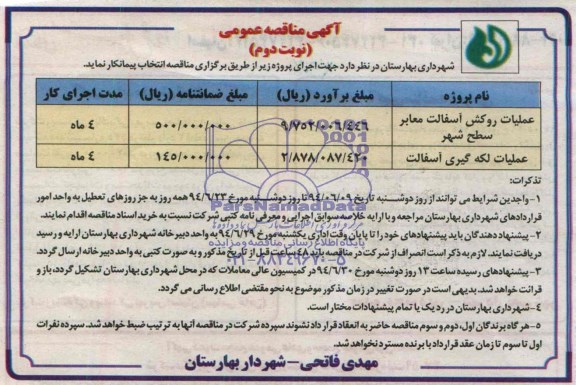 آگهی مناقصه عمومی
(نوبت دوم)
شهرداری بهارستان در نظر دارد جهت اجرای پروژه زیر از طریق برگزاری مناقصه انتخاب پیمانکار نماید.
نام پروژه	مبلغ برآورد (ریال)	مبلغ ضمانتنامه (ریال)	مدت اجرای کار
عملیات روکش آسفالت معابر سطح شهر	۹/۷۵۲/۰۰۶/۴۴۶	۵۰۰/۰۰۰/۰۰۰	۴ ماه
عملیات لکه گیری آسفالت	۲/۸۷۸/۰۸۷/۴۲۰	۱۴۵/۰۰۰/۰۰۰	۴ ماه
تذکرات:
۱- واجدین شرایط می توانند از روز دوشنبه تاریخ ۹۴/۰۶/۰۹ تا روز دوشنبه مورخ ۹۴/۶/۲۳ همه روزه به جز روزهای تعطیل به واحد امور
قراردادهای شهرداری بهارستان مراجعه و با ارایه خلاصه سوابق اجرایی و معرفی نامه کتبی شرکت نسبت به خرید اسناد مناقصه اقدام نمایند.
۲- پیشنهاد دهندگان باید پیشنهادهای خود را تا پایان وقت اداری یکشنبه مورخ ۹۴/۶/۲۹ به واحد دبیرخانه شهرداری بهارستان ارایه و رسید
دریافت نمایند. لازم به ذکر است انصراف از شرکت در مناقصه باید ۴۸ ساعت قبل از تاریخ مذکور و به صورت کتبی به واحد دبیرخانه ارسال گردد.
۳- پیشنهادهای رسیده ساعت ۱۳ روز دوشنبه مورخ ۹۴/۶/۳۰ در کمیسیون عالی معاملات که در محل شهرداری بهارستان تشکیل گردد، باز و
قرائت خواهد شد. بدیهی است در صورت تغییر در زمان مذکور موضوع به نحو مقتضی اطلاع رسانی می گردد.
۴- شهرداری بهارستان در رد یک یا تمام پیشنهادات مختار است.
۵- هر گاه برندگان اول، دوم و سوم مناقصه حاضر به انعقاد قرار داد نشوند سپرده شرکت در مناقصه آنها به ترتیب ضبط خواهد شد. سپرده نفرات
اول تا سوم تا زمان عقد قرار داد با برنده مسترد نخواهد شد.
مهدی فاتحی - شهردار بهارستان
ParsNamadData
پایگاه اطلاع رسانی مناقصه و مزایده